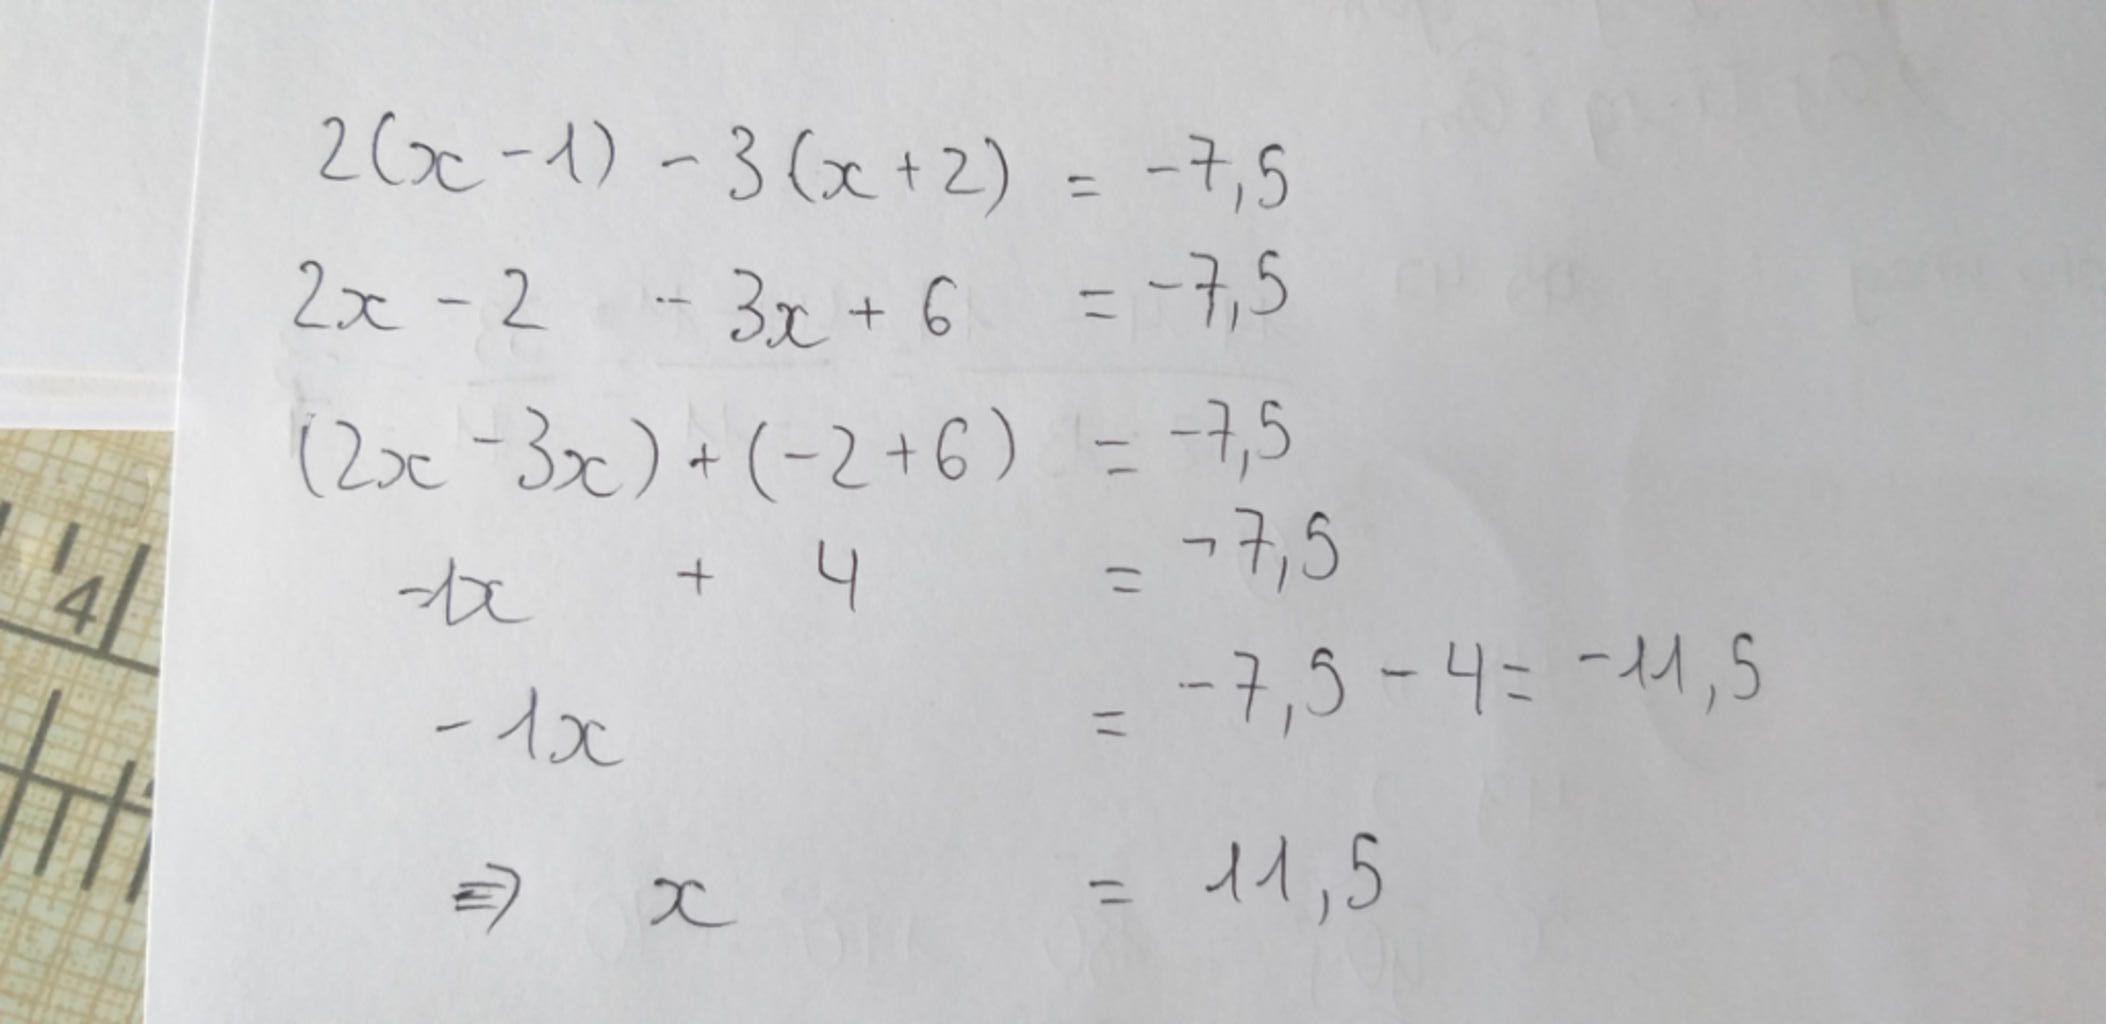 2(x-1) - 3(x+2) = -7,5
2x - 2 - 3x + 6 = -7,5
(2x -3x) + (-2+6) = -7,5
-1x + 4 = -7,5
-1x = -7,5 - 4 = -11,5
⇒ x = 11,5
4